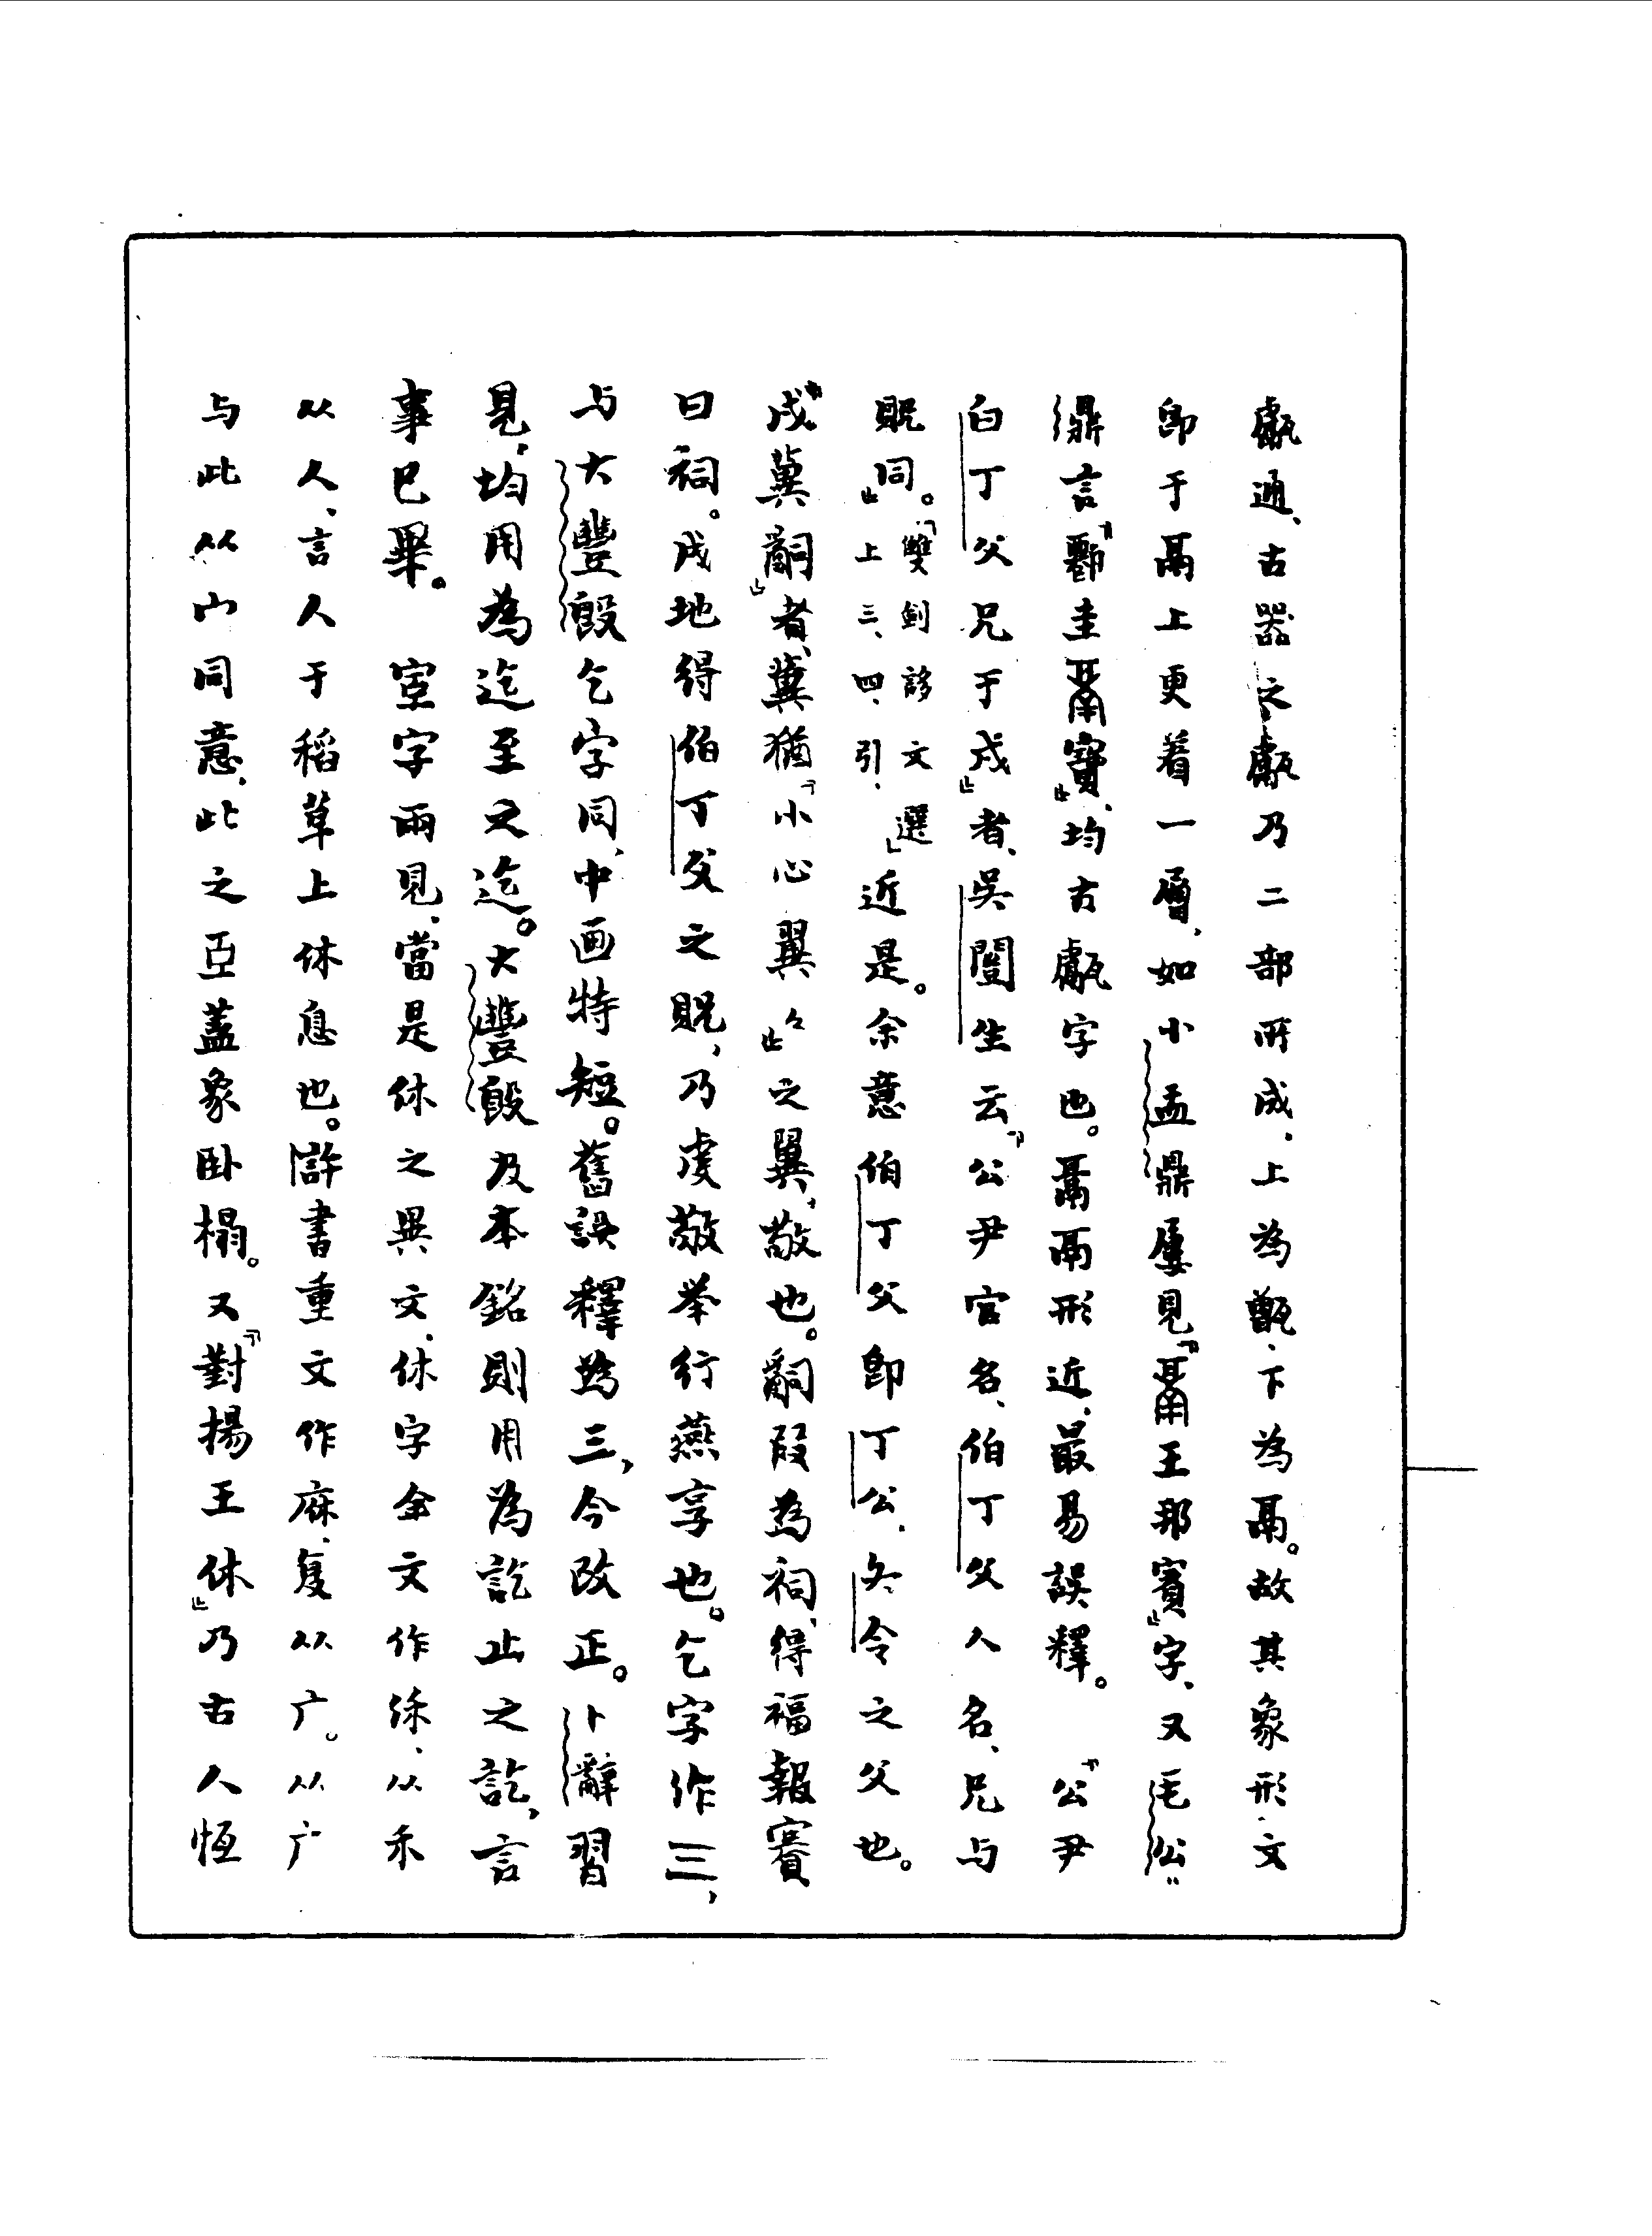 甗通、古器之甗乃二部所成、上為甑、下為鬲。故其象形文
即于鬲上更着一層、如小盂鼎屢見「王邦賓」字、又毛公
鼎言「圭寶」、均古甗字也。鬲形近、最易誤釋。　「公尹
白丁父兄于戍」者、吳闓生云「公尹官名、伯丁父人名、兄与
貺同。」「雙劍誃文選」上三、四、引、近是。余意伯丁父即丁公、夨令之父也。
「戍冀嗣」者、冀猶「小心翼々」之翼、敬也。嗣叚為祠、得福報賽
曰祠。戍地得伯丁父之貺，乃虔敬举行燕享也。乞字作三，
与大豐𣪘乞字同、中画特短。舊誤釋為三，今改正。卜辭習
見，均用為迄至之迄。大豐𣪘及本銘則用為訖止之訖，言
事已畢。　室字兩見、當是休之異文、休字金文作㳜、从禾
从人、言人于稻草上休息也。許書重文作庥、复从广。从广
与此从宀同意、此之亞蓋象卧榻。又「對揚王休」乃古人恆